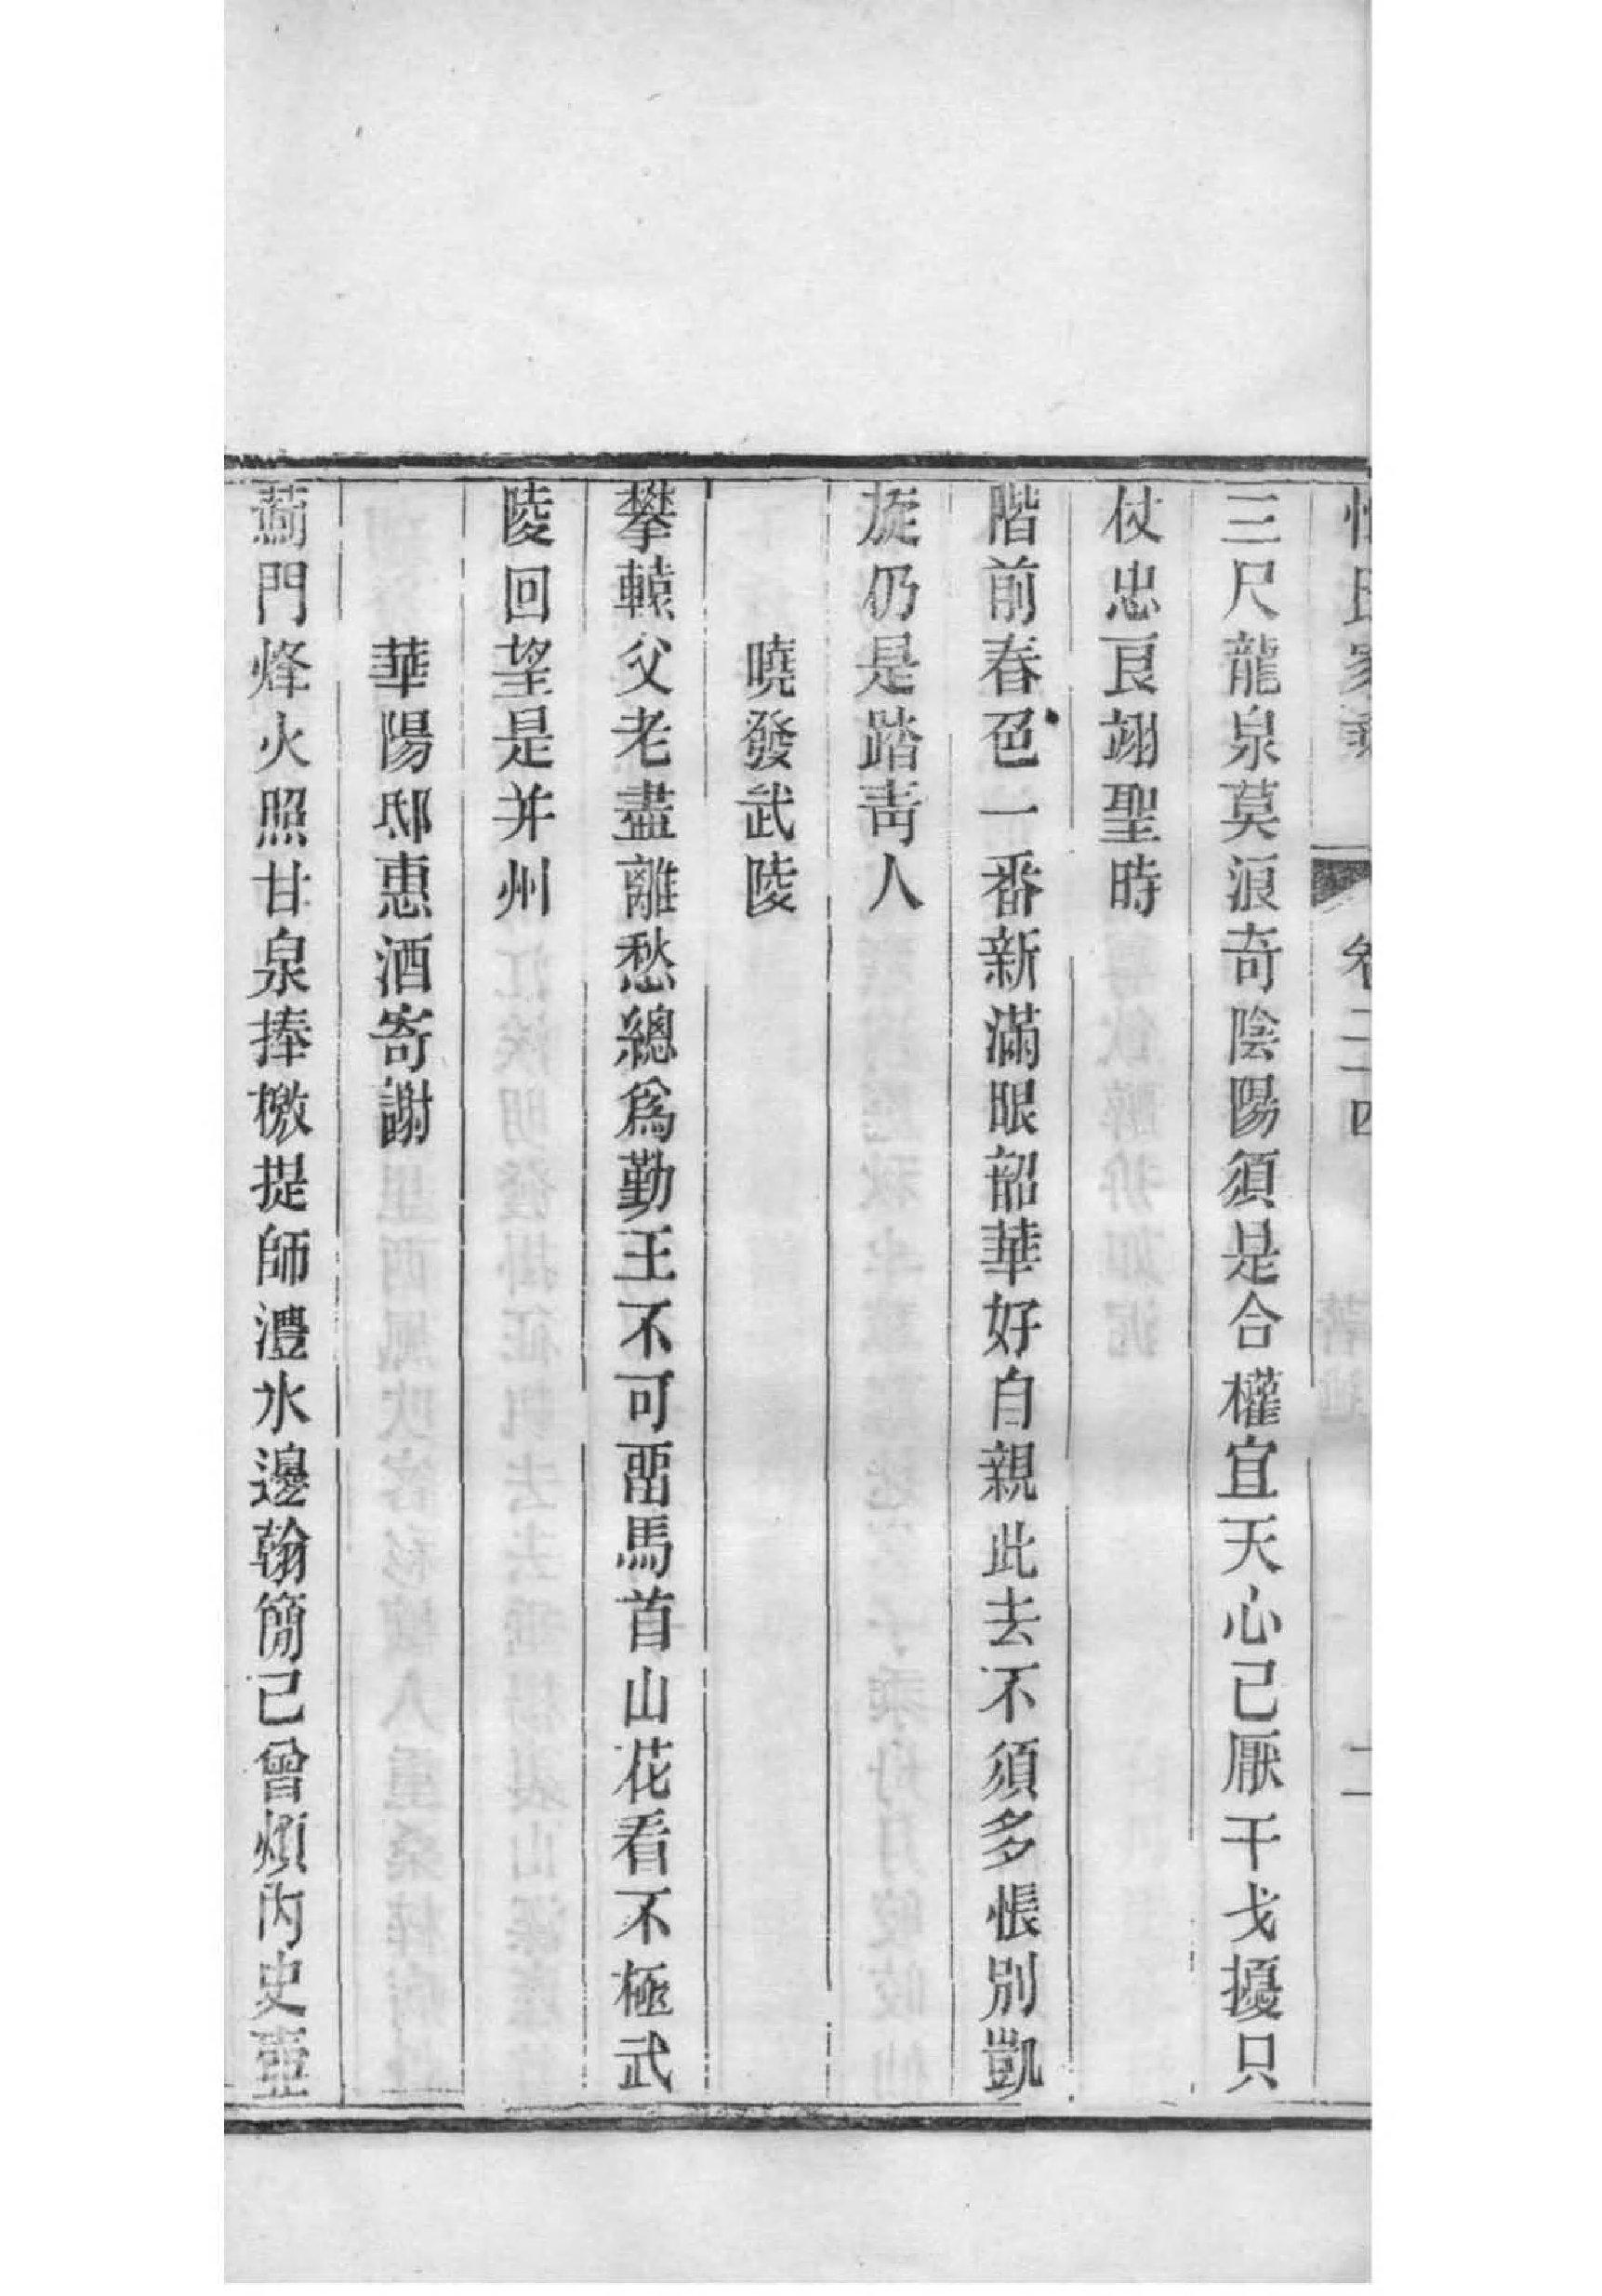 三尺龍泉莫浪奇陰陽須是合權宜天心己厭干戈擾只
仗忠良翊聖時
階前春色一番新滿眼韶華好自親此去不須多悵別凱
旋仍是踏靑人
曉發武陵
攀轅父老盡離愁總爲勤王不可畱馬首山花看不極武
陵回望是并州
華陽邸惠酒寄謝
薊門烽火照甘泉捧檄提師澧水邊翰簡己曾煩內史壺